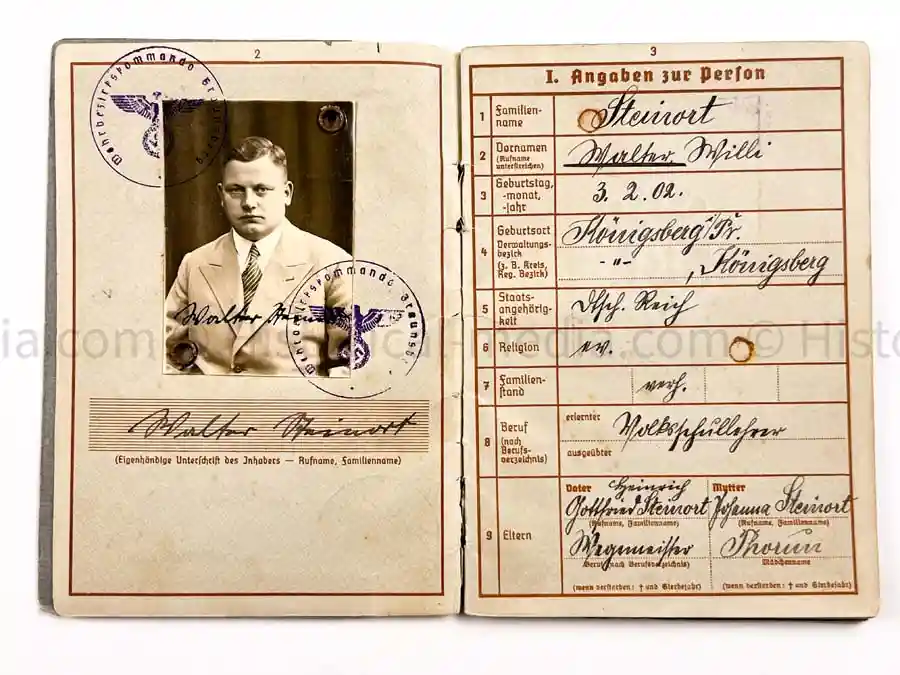 2
Wehrbezirkskommando Braunsberg
Walter Steinort
Wehrbezirkskommando Braunsberg
Walter Steinort
(Eigenhändige Unterschrift des Inhabers — Rufname, Familienname)
3
I. Angaben zur Person
1 Familien-
name
Steinort
2 Vornamen
(Rufname
unterstreichen)
Walter Willi
3 Geburtstag,
-monat,
-jahr
3. 2. 02.
4 Geburtsort
Verwaltungs-
bezirk
(z. B. Kreis,
Reg. Bezirk)
Königsberg i/Pr.
- " - , Königsberg
5 Staats-
angehörig-
keit
Dtsch. Reich
6 Religion
ev.
7 Familien-
stand
verh.
8 Beruf
(nach
Berufs-
verzeichnis)
erlernter Volksschullehrer
ausgeübter
9 Eltern
Vater Heinrich
Gottfried Steinort
(Rufname, Familienname)
Wegemeister
Beruf (nach Berufsverzeichnis)
(wenn verstorben: † und Sterbejahr)
Mutter
Johanna Steinort
(Rufname, Familienname)
Thorun
Mädchenname
(wenn verstorben: † und Sterbejahr)
ia.com © Historical-Media.com © Histo